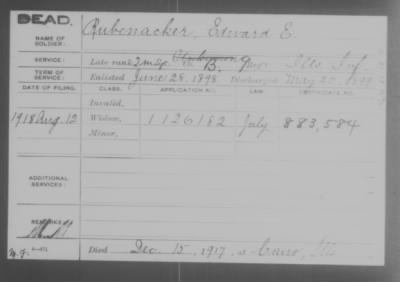 DEAD.
NAME OF SOLDIER: Rubenacker, Edward E.
SERVICE: Late rank, Ills Inf
TERM OF SERVICE: Enlisted June 28, 1898 Discharged May 20, 1899
DATE OF FILING. CLASS. APPLICATION NO. LAW. CERTIFICATE NO.
Invalid,
1918 Aug. 12 Widow, 1126182 July 883,584
Minor,
ADDITIONAL SERVICES:
REMARKS:
Died Dec. 15, 1917, at Cairo, Ill